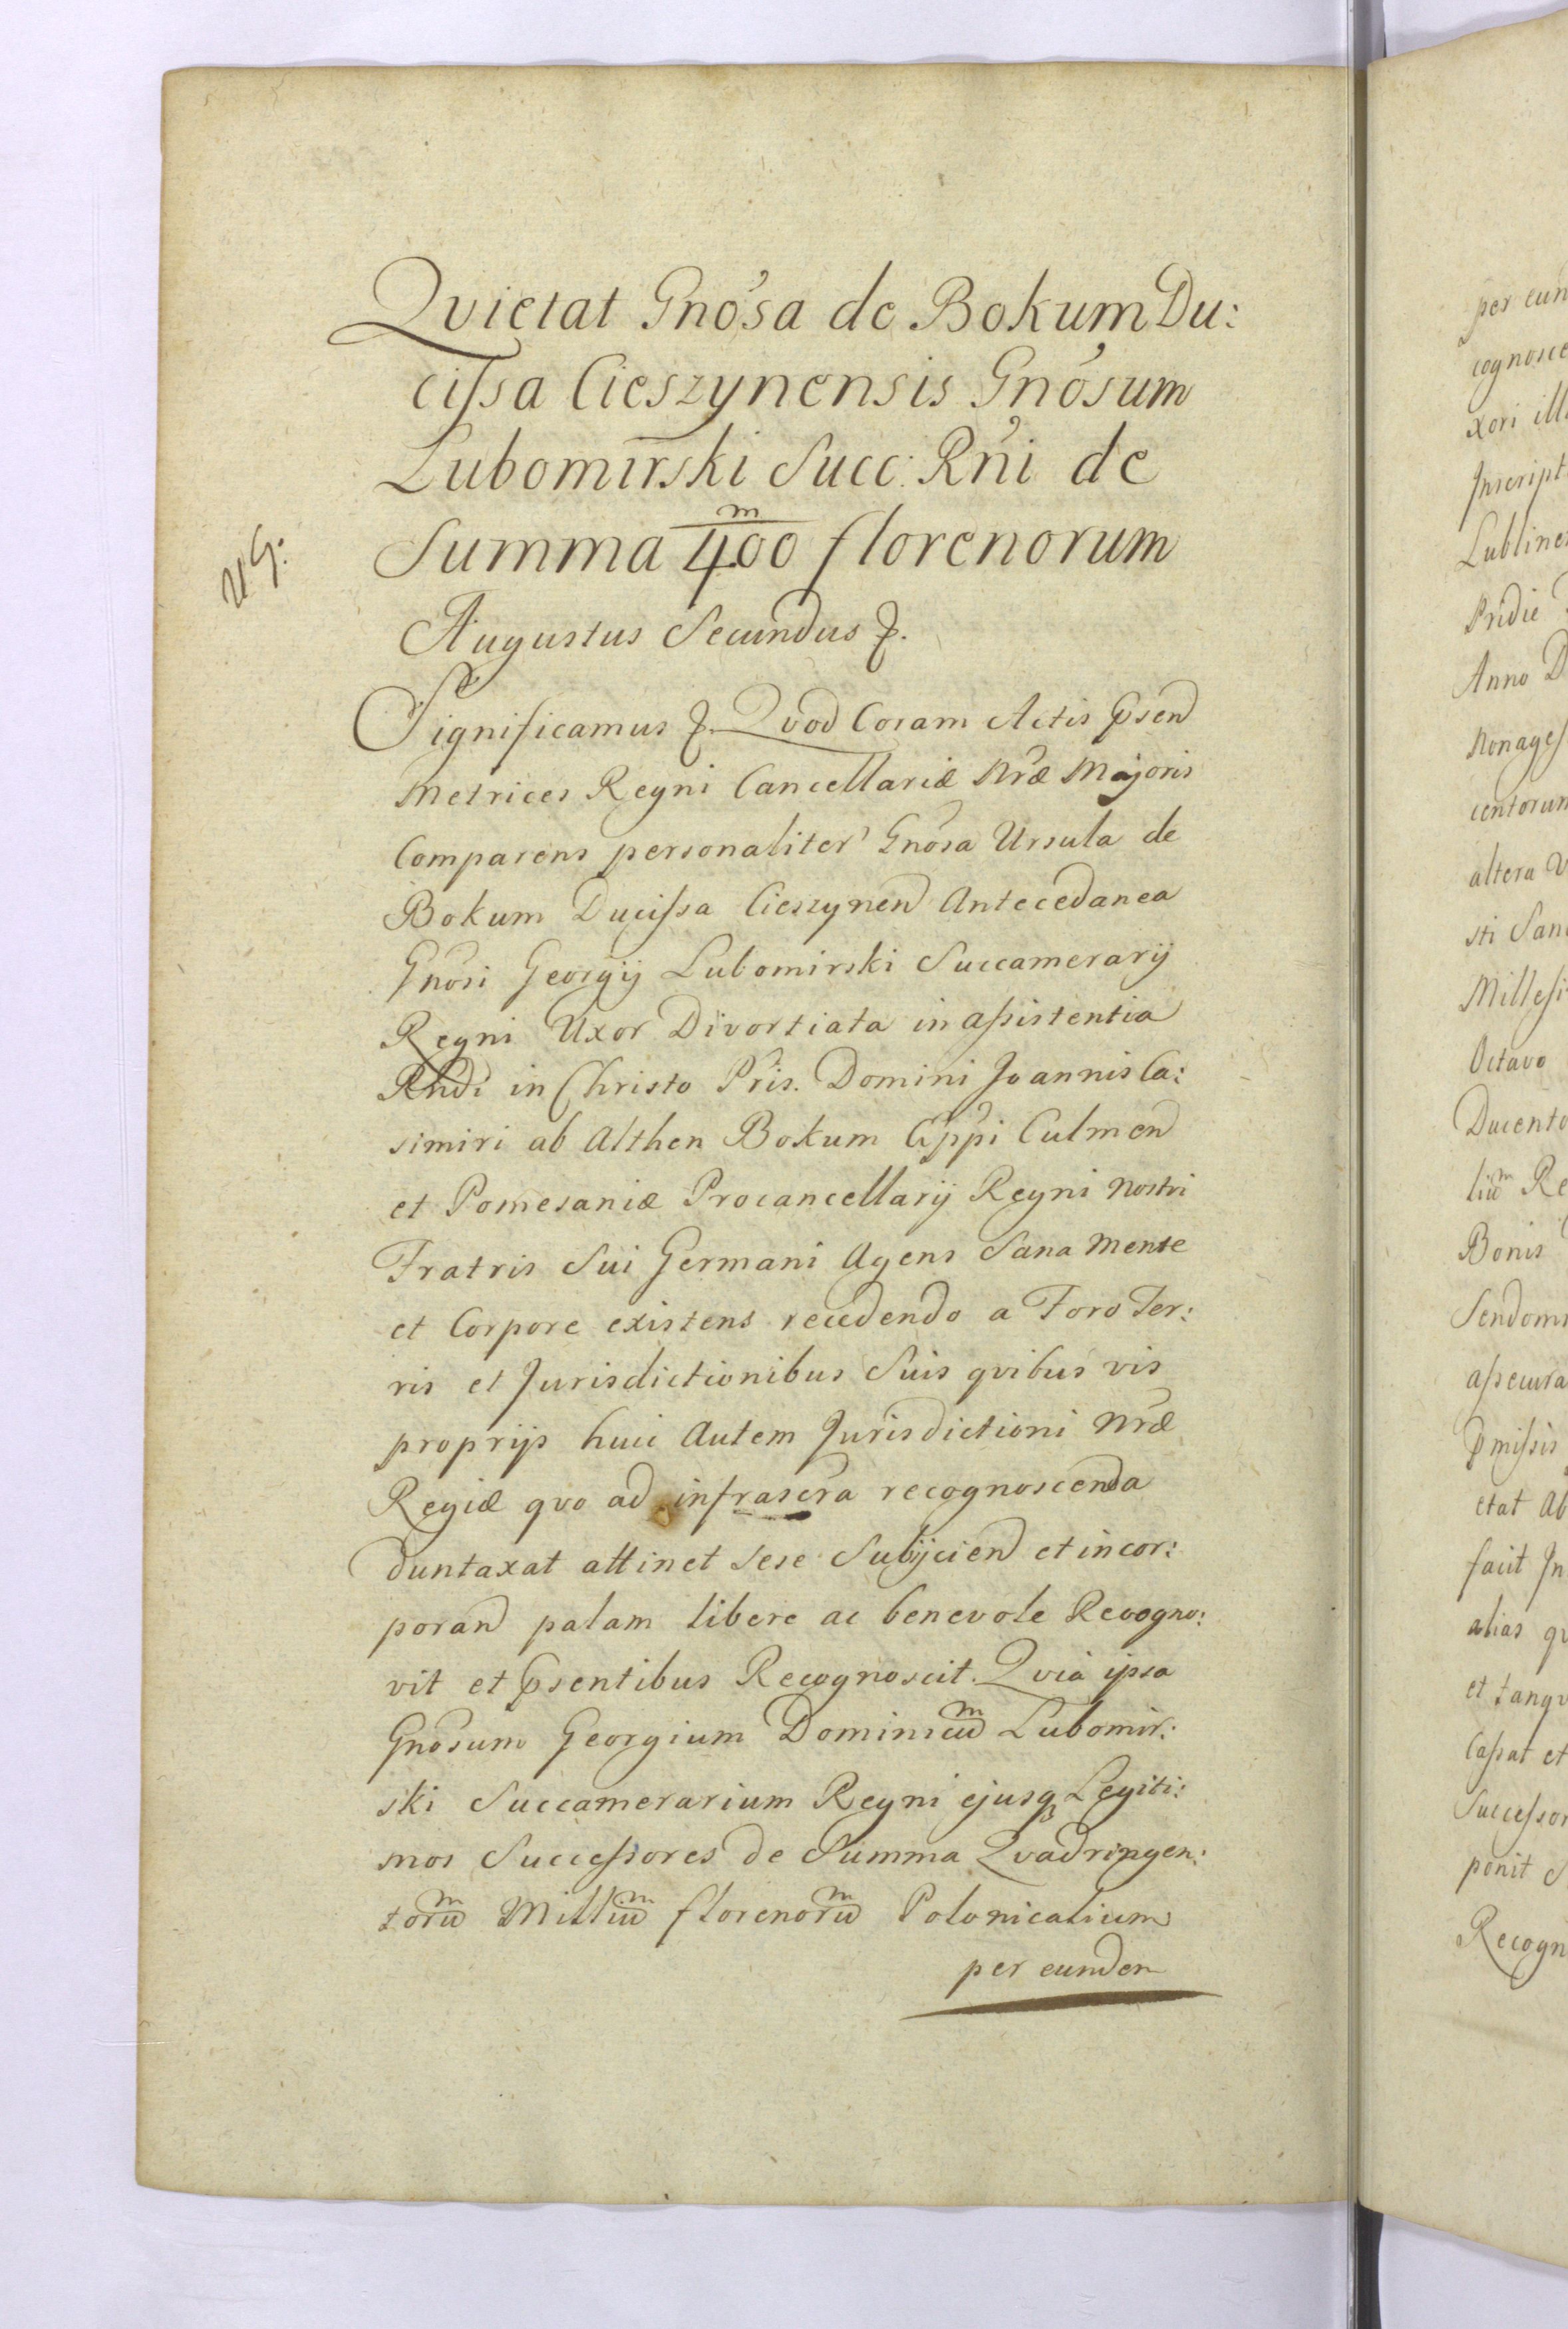 Qvietat Gnosa de Bokum Du:
cissa Cieszynensis Gnosum
Lubomirski Succ: Rni de
Summa 400 m florenorum
Augustus Secundus &.
Significamus &. Qvod Coram Actis Psend
Metrices Regni Cancellariæ Nræ Majoris
Comparens personaliter Gnosa Ursula de
Bokum Ducissa Cieszynen Antecedanea
Gnosi Georgij Lubomirski Succamerarij
Regni Uxor Divortiata in assistentia
Rndi in Christo Pris. Domini Joannis Ca:
simiri ab Althen Bokum Eppi Culmen
et Pomesaniæ Procancellarij Regni Nostri
Fratris Sui Germani Agens Sana Mente
et Corpore existens recedendo a Foro Ter:
ris et Jurisdictionibus Suis qvibus vis
proprijs huic Autem Jurisdictioni Nræ
Regiæ qvo ad infrascra recognoscenda
duntaxat attinet Sese Subijciend et incor:
porand palam libere ac benevole Recogno:
vit et Psentibus Recognoscit. Qvia ipsa
Gnosum Georgium Dominicum Lubomir:
ski Succamerarium Regni ejusq Legiti:
mos Successores de Summa Qvadringen:
torum Millium florenorum Polonicalium
per eundem
UG:
per eun
cognosce
xori ill
Inscript
Lubline
Pridie
Anno D
Nonages
centorum
altera
sti San
Millesi
Octavo
Ducento
lium Re
Bonis
Sendomi
assecura
Pmissis
etat Ab
facit In
alias qv
et tanqv
Cassat et
Successor
ponit S
Recogn